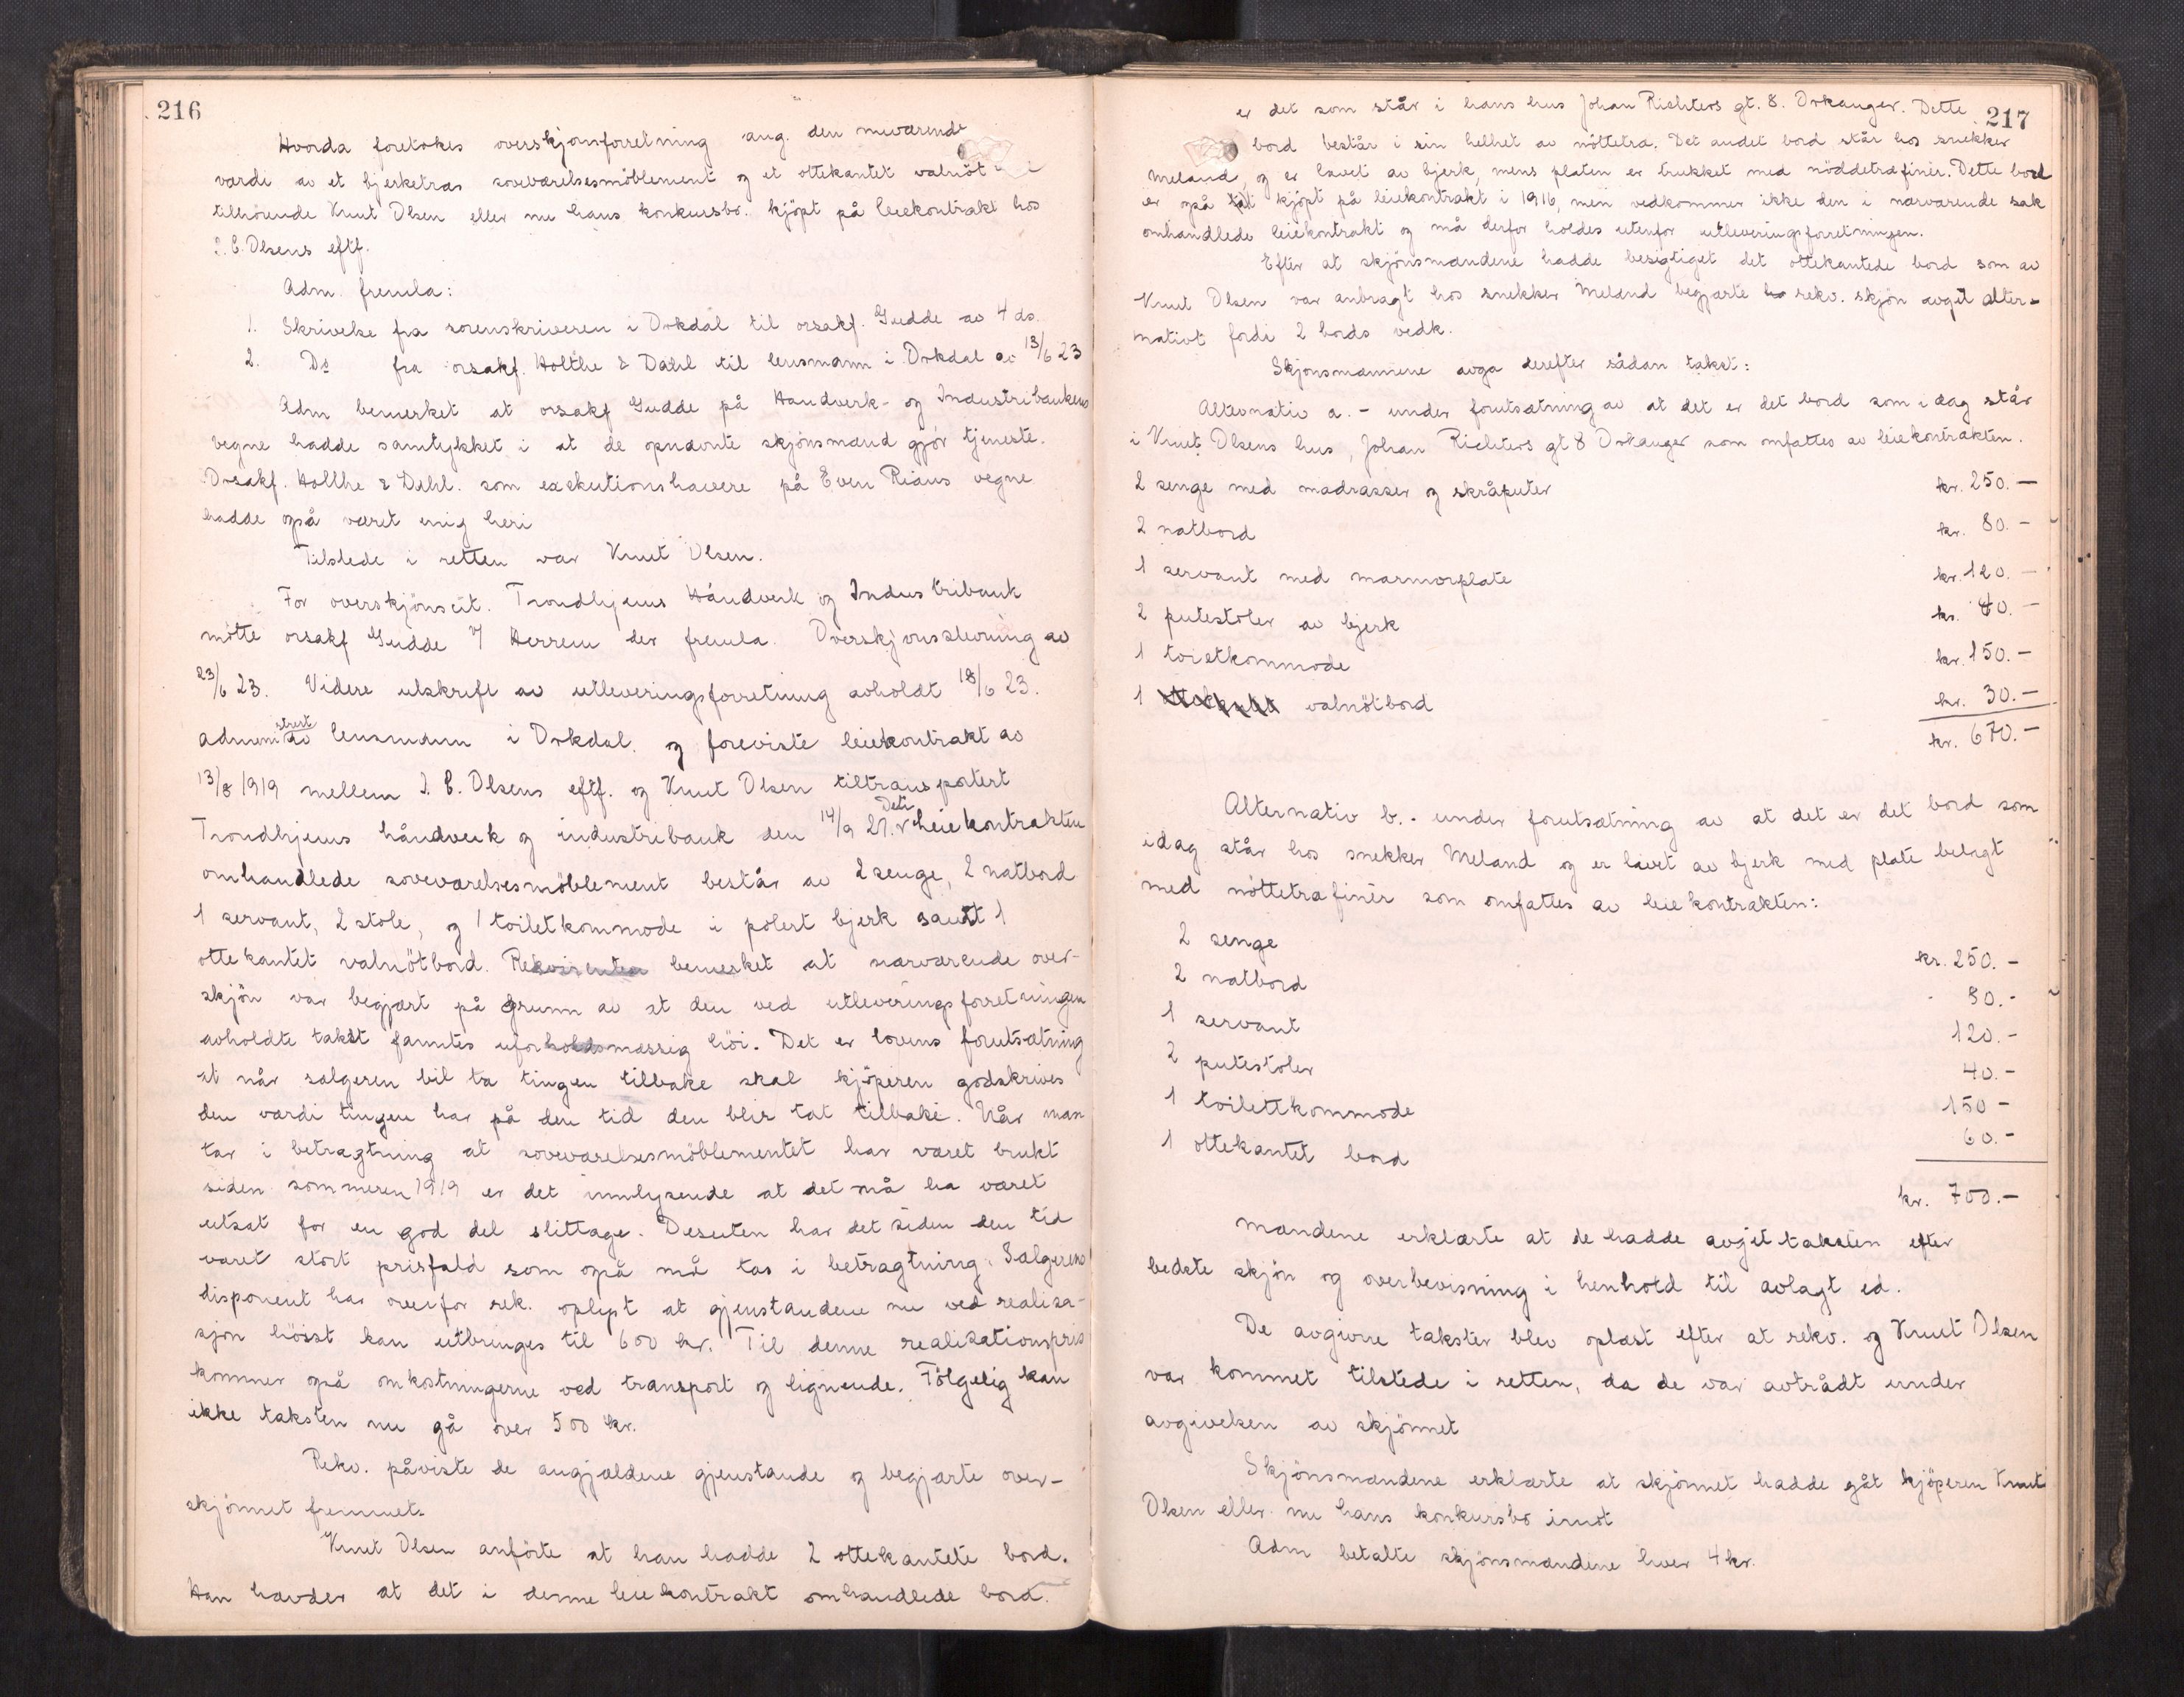 216
Hvorda foretokes overskjönsforretning ang. den nuværende
værdi av et bjerketræs soveværelsesmöblement og et ottekantet valnöt
tilhörende Knut Olsen eller nu hans konkursbo. kjöpt på leiekontrakt hos
J. E. Olsens eftf.
Adm. fremla:
1. Skrivelse fra sorenskriveren i Orkdal til orsakf. Gudde av 4 ds.
2. Do fra orsakf. Holthe & Dahl til lensmann i Orkdal av 13/6 23
Adm bemerket at orsakf Gudde på Handverk- og Industribankens
vegne hadde samtykket i at de opnævnte skjönsmænd gjör tjeneste.
Orsakf. Holthe & Dahl. som exekutionshavere på Even Rians vegne
hadde også været enig heri
Tilstede i retten var Knut Olsen.
For overskjönscit. Trondhjems Håndverk og Industribank
mötte orsakf Gudde v/ Herrem der fremla. Overskjönsstevning av
23/6 23. Videre utskrift av utleveringsforretning avholdt 18/6 23.
adminstrert av lensmann i Orkdal. og foreviste leiekontrakt av
13/8 1919 mellem J. E. Olsens eftf. og Knut Olsen tiltransportert
Trondhjems håndverk og industribank den 14/9 21. Det i leiekontrakten
omhandlede soveværelsesmöblement består av 2 senge, 2 natbord
1 servant, 2 stole, og 1 toiletkommode i polert bjerk samt 1
ottekantet valnötbord. Rekvirenten bemerket at nærværende over-
skjön var begjært på grunn av at den ved utleveringsforretningen
avholdte takst fanntes uforholdsmæssig höi. Det er lovens forutsætning
at når sælgeren vil ta tingen tilbake skal kjöperen godskrives
den værdi tingen har på den tid den blir tat tilbake. Når man
tar i betragtning at soveværelsesmöblementet har været brukt
siden sommeren 1919 er det innlysende at det må ha været
utsat for en god del slittage. Desuten har det siden den tid
været stort prisfald som også må tas i betragtning. Sælgerens
disponent har overfor rek. oplyst at gjenstandene nu ved realisa-
sjon höist kan utbringes til 600 kr. Til denne realisationspris
kommer også omkostningerne ved transport og lignende. Fölgelig kan
ikke taksten nu gå over 500 kr.
Rekv. påviste de angjældene gjenstande og begjærte over-
skjönnet fremmet.
Knut Olsen anförte at han hadde 2 ottekantete bord.
Han hævder at det i denne leiekontrakt omhandlede bord.
217
er det som står i hans hus Johan Richters gt. 8. Orkanger. Dette
bord består i sin helhet av nöttetræ. Det andet bord står hos snekker
Meland, og er lavet av bjerk, mens platen er trukket med nöddetræfinér. Dette bord
er også kjöpt på leiekontrakt i 1916, men vedkommer ikke den i nærværende sak
omhandlede leiekontrakt og må derfor holdes utenfor utleveringsforretningen.
Efter at skjönsmændene hadde besigtiget det ottekantede bord som av
Knut Olsen var anbragt hos snekker Meland begjærte rekv. skjön avgit alter-
nativt fordi 2 bords vedk.
Skjönsmænnene avga derefter sådan takst:
Alternativ a. - under forutsætning av at det er det bord som i dag står
i Knut Olsens hus, Johan Richters gt 8 Orkanger som omfattes av leiekontrakten.
2 senge med madrasser og skråputer kr. 250.—
2 natbord kr. 80.-
1 servant med marmorplate kr. 120.-
2 putestoler av bjerk kr. 40.-
1 toietkommode kr. 150.-
1 valnötbord kr. 30.-
kr. 670.-
Alternativ b. - under forutsætning av at det er det bord som
idag står hos snekker Meland og er lavet av bjerk med plate belagt
med nöttetræfinér som omfattes av leiekontrakten:
2 senge kr. 250.-
2 natbord 80.-
1 servant 120.-
2 putestoler 40.-
1 toilettkommode 150-
1 ottekantet bord 60.-
kr. 700.-
Mændene erklærte at de hadde avgjet taksten efter
bedste skjön og overbevisning i henhold til avlagt ed.
De avgivne takster blev oplæst efter at rekv. og Knut Olsen
var kommet tilstede i retten, da de var avtrådt under
avgivelsen av skjönnet
Skjönsmændene erklærte at skjönnet hadde gåt kjöperen Knut
Olsen eller nu hans konkursbo imot
Adm betalte skjönsmændene hver 4 kr.